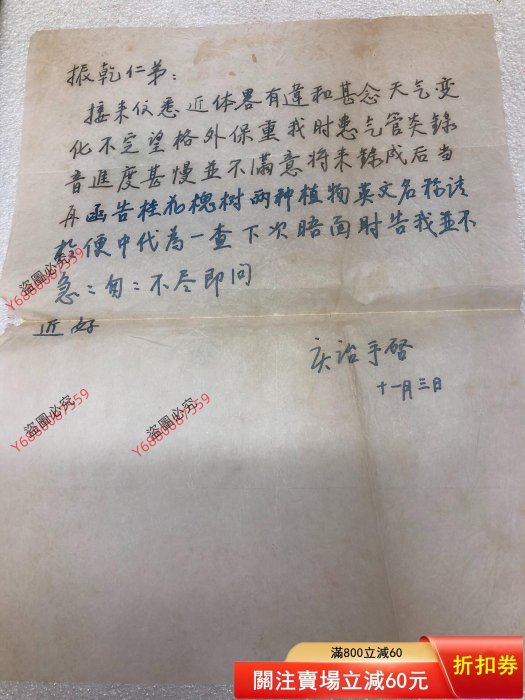 振乾仁弟：
接来仪悉近体畧有違和甚念天气变
化不定望格外保重我时患气管炎錄
音進度甚慢並不满意将来錄成后当
再函告桂花槐树两种植物英文名称请
便中代为一查下次晤面时告我並不
急：匆：不尽即问
近好
庆诒手啓
十一月三日
盜圖必究
Y6880087559
盜圖必究
Y6880087559
盜圖必究
Y6880087559
滿800立減60
關注賣場立減60元
折扣券